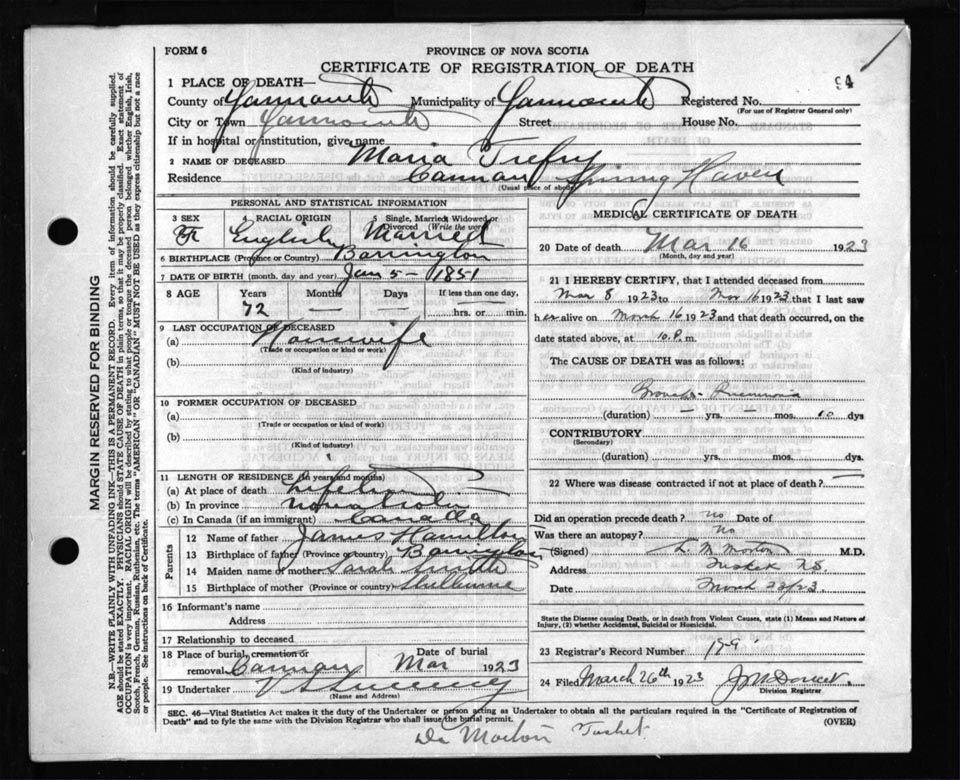 FORM 6
PROVINCE OF NOVA SCOTIA
CERTIFICATE OF REGISTRATION OF DEATH
94
1 PLACE OF DEATH—
County of Yarmouth Municipality of Yarmouth Registered No.
(For use of Registrar General only)
City or Town Yarmouth Street House No.
If in hospital or institution, give name
2 NAME OF DECEASED Maria Trefry
Residence Haven
(Usual place of abode)
PERSONAL AND STATISTICAL INFORMATION
3 SEX F
4 RACIAL ORIGIN English
5 Single, Married, Widowed or Divorced (Write the word) Married
6 BIRTHPLACE (Province or Country) Barrington
7 DATE OF BIRTH (month, day and year) Jan 5 - 1851
8 AGE Years Months Days If less than one day,
72 — — hrs. or min.
9 LAST OCCUPATION OF DECEASED
(a) Housewife
(Trade or occupation or kind or work)
(b)
(Kind of industry)
10 FORMER OCCUPATION OF DECEASED
(a)
(Trade or occupation or kind or work)
(b)
(Kind of industry)
11 LENGTH OF RESIDENCE (in years and months)
(a) At place of death Lifetime
(b) In province Nova Scotia
(c) In Canada (if an immigrant) Canada
Parents
12 Name of father James Hamilton
13 Birthplace of father (Province or country) Barrington
14 Maiden name of mother Sarah Smith
15 Birthplace of mother (Province or country) Shelburne
16 Informant's name
Address
17 Relationship to deceased
18 Place of burial, cremation or removal Date of burial
Mar 1923
19 Undertaker V S Sweeney
(Name and Address)
MEDICAL CERTIFICATE OF DEATH
20 Date of death Mar 16 1923
(Month, day and year)
21 I HEREBY CERTIFY, that I attended deceased from
Mar 8 1923 to Mar 16 1923 that I last saw
her alive on March 16 1923 and that death occurred, on the
date stated above, at 10 P. m.
The CAUSE OF DEATH was as follows:
Broncho-Pneumonia
(duration) — yrs. — mos. 10 dys
CONTRIBUTORY
(Secondary)
(duration) yrs. mos. dys
22 Where was disease contracted if not at place of death?
Did an operation precede death? no Date of
Was there an autopsy? No
(Signed) L. M. Morton M.D.
Address Tusket N.S.
Date March 23/23
State the Disease causing Death, or in death from Violent Causes, state (1) Means and Nature of
Injury, (2) whether Accidental, Suicidal or Homicidal.
23 Registrar's Record Number
24 Filed March 26th 1923
Division Registrar
SEC. 46—Vital Statistics Act makes it the duty of the Undertaker or person acting as Undertaker to obtain all the particulars required in the "Certificate of Registration of
Death" and to fyle the same with the Division Registrar who shall issue the burial permit.
(OVER)
Dr Morton Tusket.
MARGIN RESERVED FOR BINDING
N.B.—WRITE PLAINLY WITH UNFADING INK—THIS IS A PERMANENT RECORD. Every item of information should be carefully supplied.
AGE should be stated EXACTLY. PHYSICIANS should STATE CAUSE OF DEATH in plain terms, so that it may be properly classified. Exact statement of
OCCUPATION is very important. RACIAL ORIGIN will be described by stating to what people or tongue the deceased person belonged whether English, Irish,
Scotch, French, German, Russian, Ruthenian, etc. The terms "AMERICAN" OR "CANADIAN" MUST NOT BE USED as they express citizenship but not a race
or people. See instructions on back of Certificate.